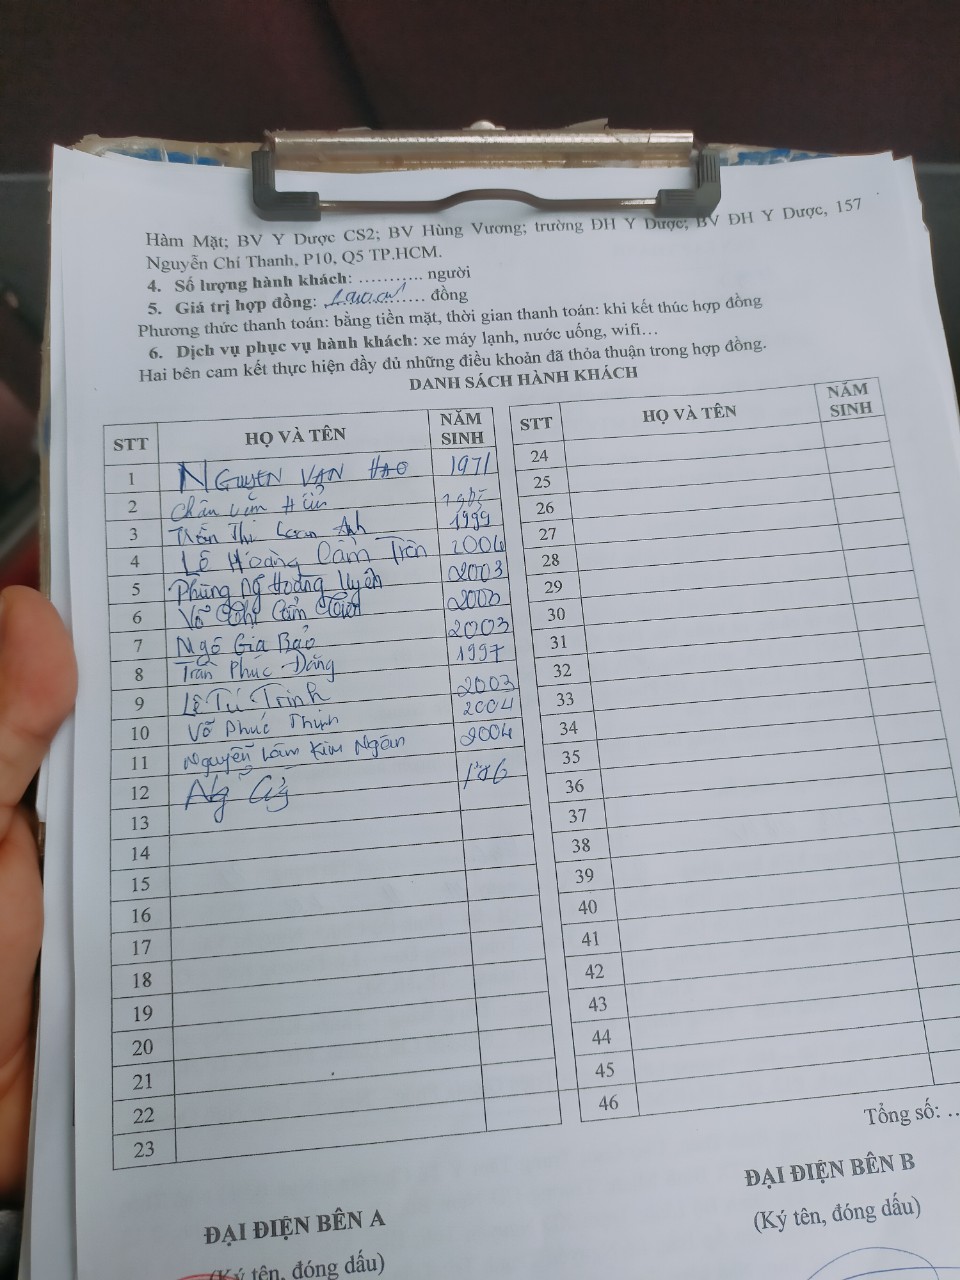 Hàm Mặt; BV Y Dược CS2; BV Hùng Vương; trường ĐH Y Dược; BV ĐH Y Dược, 157
Nguyễn Chí Thanh, P10, Q5 TP.HCM.
4. Số lượng hành khách: ........... người
5. Giá trị hợp đồng: ...... đồng
Phương thức thanh toán: bằng tiền mặt, thời gian thanh toán: khi kết thúc hợp đồng
6. Dịch vụ phục vụ hành khách: xe máy lạnh, nước uống, wifi…
Hai bên cam kết thực hiện đầy đủ những điều khoản đã thỏa thuận trong hợp đồng.
DANH SÁCH HÀNH KHÁCH
STT HỌ VÀ TÊN NĂM SINH
1 NGUYEN VAN HAO 1971
2
3 Trần Thị Loan Anh 1999
4 Lê Hoàng Cẩm Trân 2004
5 Phùng Ng Hoàng Uyên 2003
6 Võ Thị Cẩm 2000
7 Ngô Gia Bảo 2003
8 Trần Phúc Đăng 1997
9 Lê Tú Trinh 2003
10 Võ Phúc Thịnh 2004
11 Nguyễn Lâm Kim Ngân 2004
12 Ng
13
14
15
16
17
18
19
20
21
22
23
STT HỌ VÀ TÊN NĂM SINH
24
25
26
27
28
29
30
31
32
33
34
35
36
37
38
39
40
41
42
43
44
45
46
Tổng số: ..
ĐẠI ĐIỆN BÊN A
(Ký tên, đóng dấu)
ĐẠI ĐIỆN BÊN B
(Ký tên, đóng dấu)